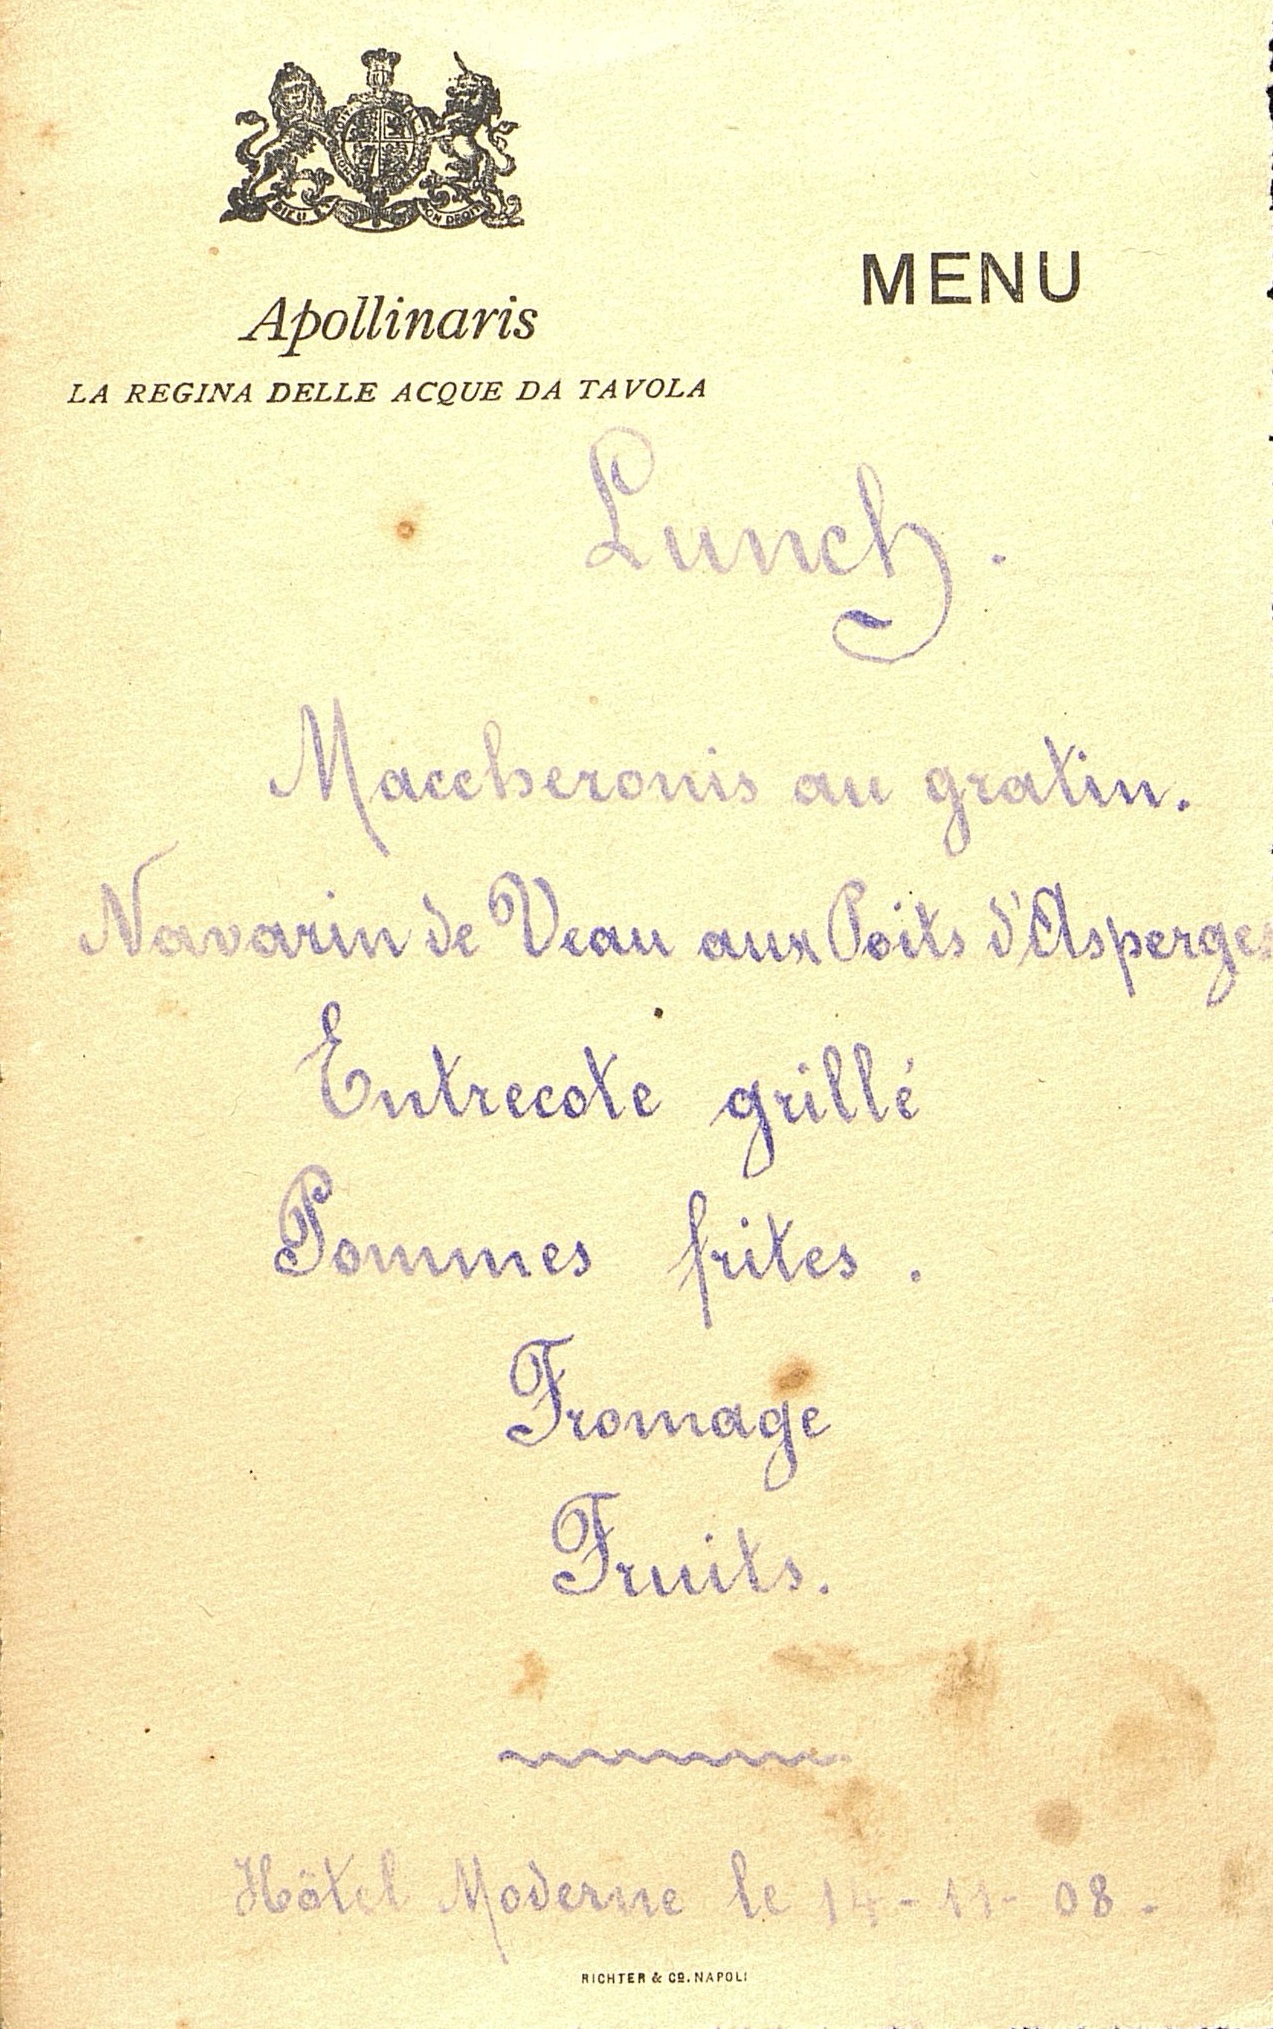 DIEU ET MON DROIT
Apollinaris
LA REGINA DELLE ACQUE DA TAVOLA
MENU
Lunch.
Maccheronis au gratin.
Navarin de Veau aux Poits d'Asperges
Entrecote grillé
Pommes frites.
Fromage
Fruits.
Hôtel Moderne le 14-11-08.
RICHTER & Co. NAPOLI